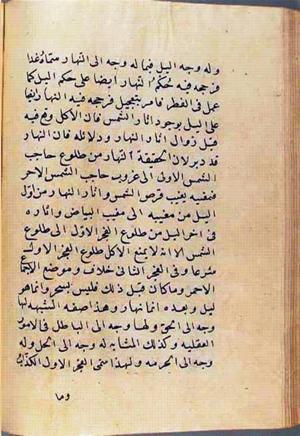 وله وجه اليل فيما له وجه الى النهار متماة غذا
فرجحه فيه حكم النهار ايضا على حكم اليل كما
عمل فى الفطر فامر بتعجيل فرجحه فيه النهار ايضا
على اليل بوجود اثار الشمس فان الاكل وقع فيه
قبل زوال اثار النهار ودلائله فان النهار
قد دبر لان الحقيقة النهار من طلوع حاجب
الشمس الاول الى غروب حاجب الشمس الاخر
فبمغيبه يغيب قرص الشمس واثار النهار من اول
اليل من مغيبه الى مغيب البياض واثاره
فى اخر اليل من طلوع الفجر الاول الى طلوع
الشمس الا انه لا يمنع الاكل طلوع الفجر الاول
شرعا وفى الفجر الثانى خلاف وموضع الاجماع
الاحمر وما كان قبل ذلك فليس بسحر وانما هو
ليل وبعده انما نهار وهذا صفة الشبهة لها
وجه الى الحق ولها وجه الى الباطل فى الامور
العقليه وكذلك المتشابه له وجه الى الحل وله
وجه الى الحرمه ولهذا سمى الفجر الاول الكذاب
وما